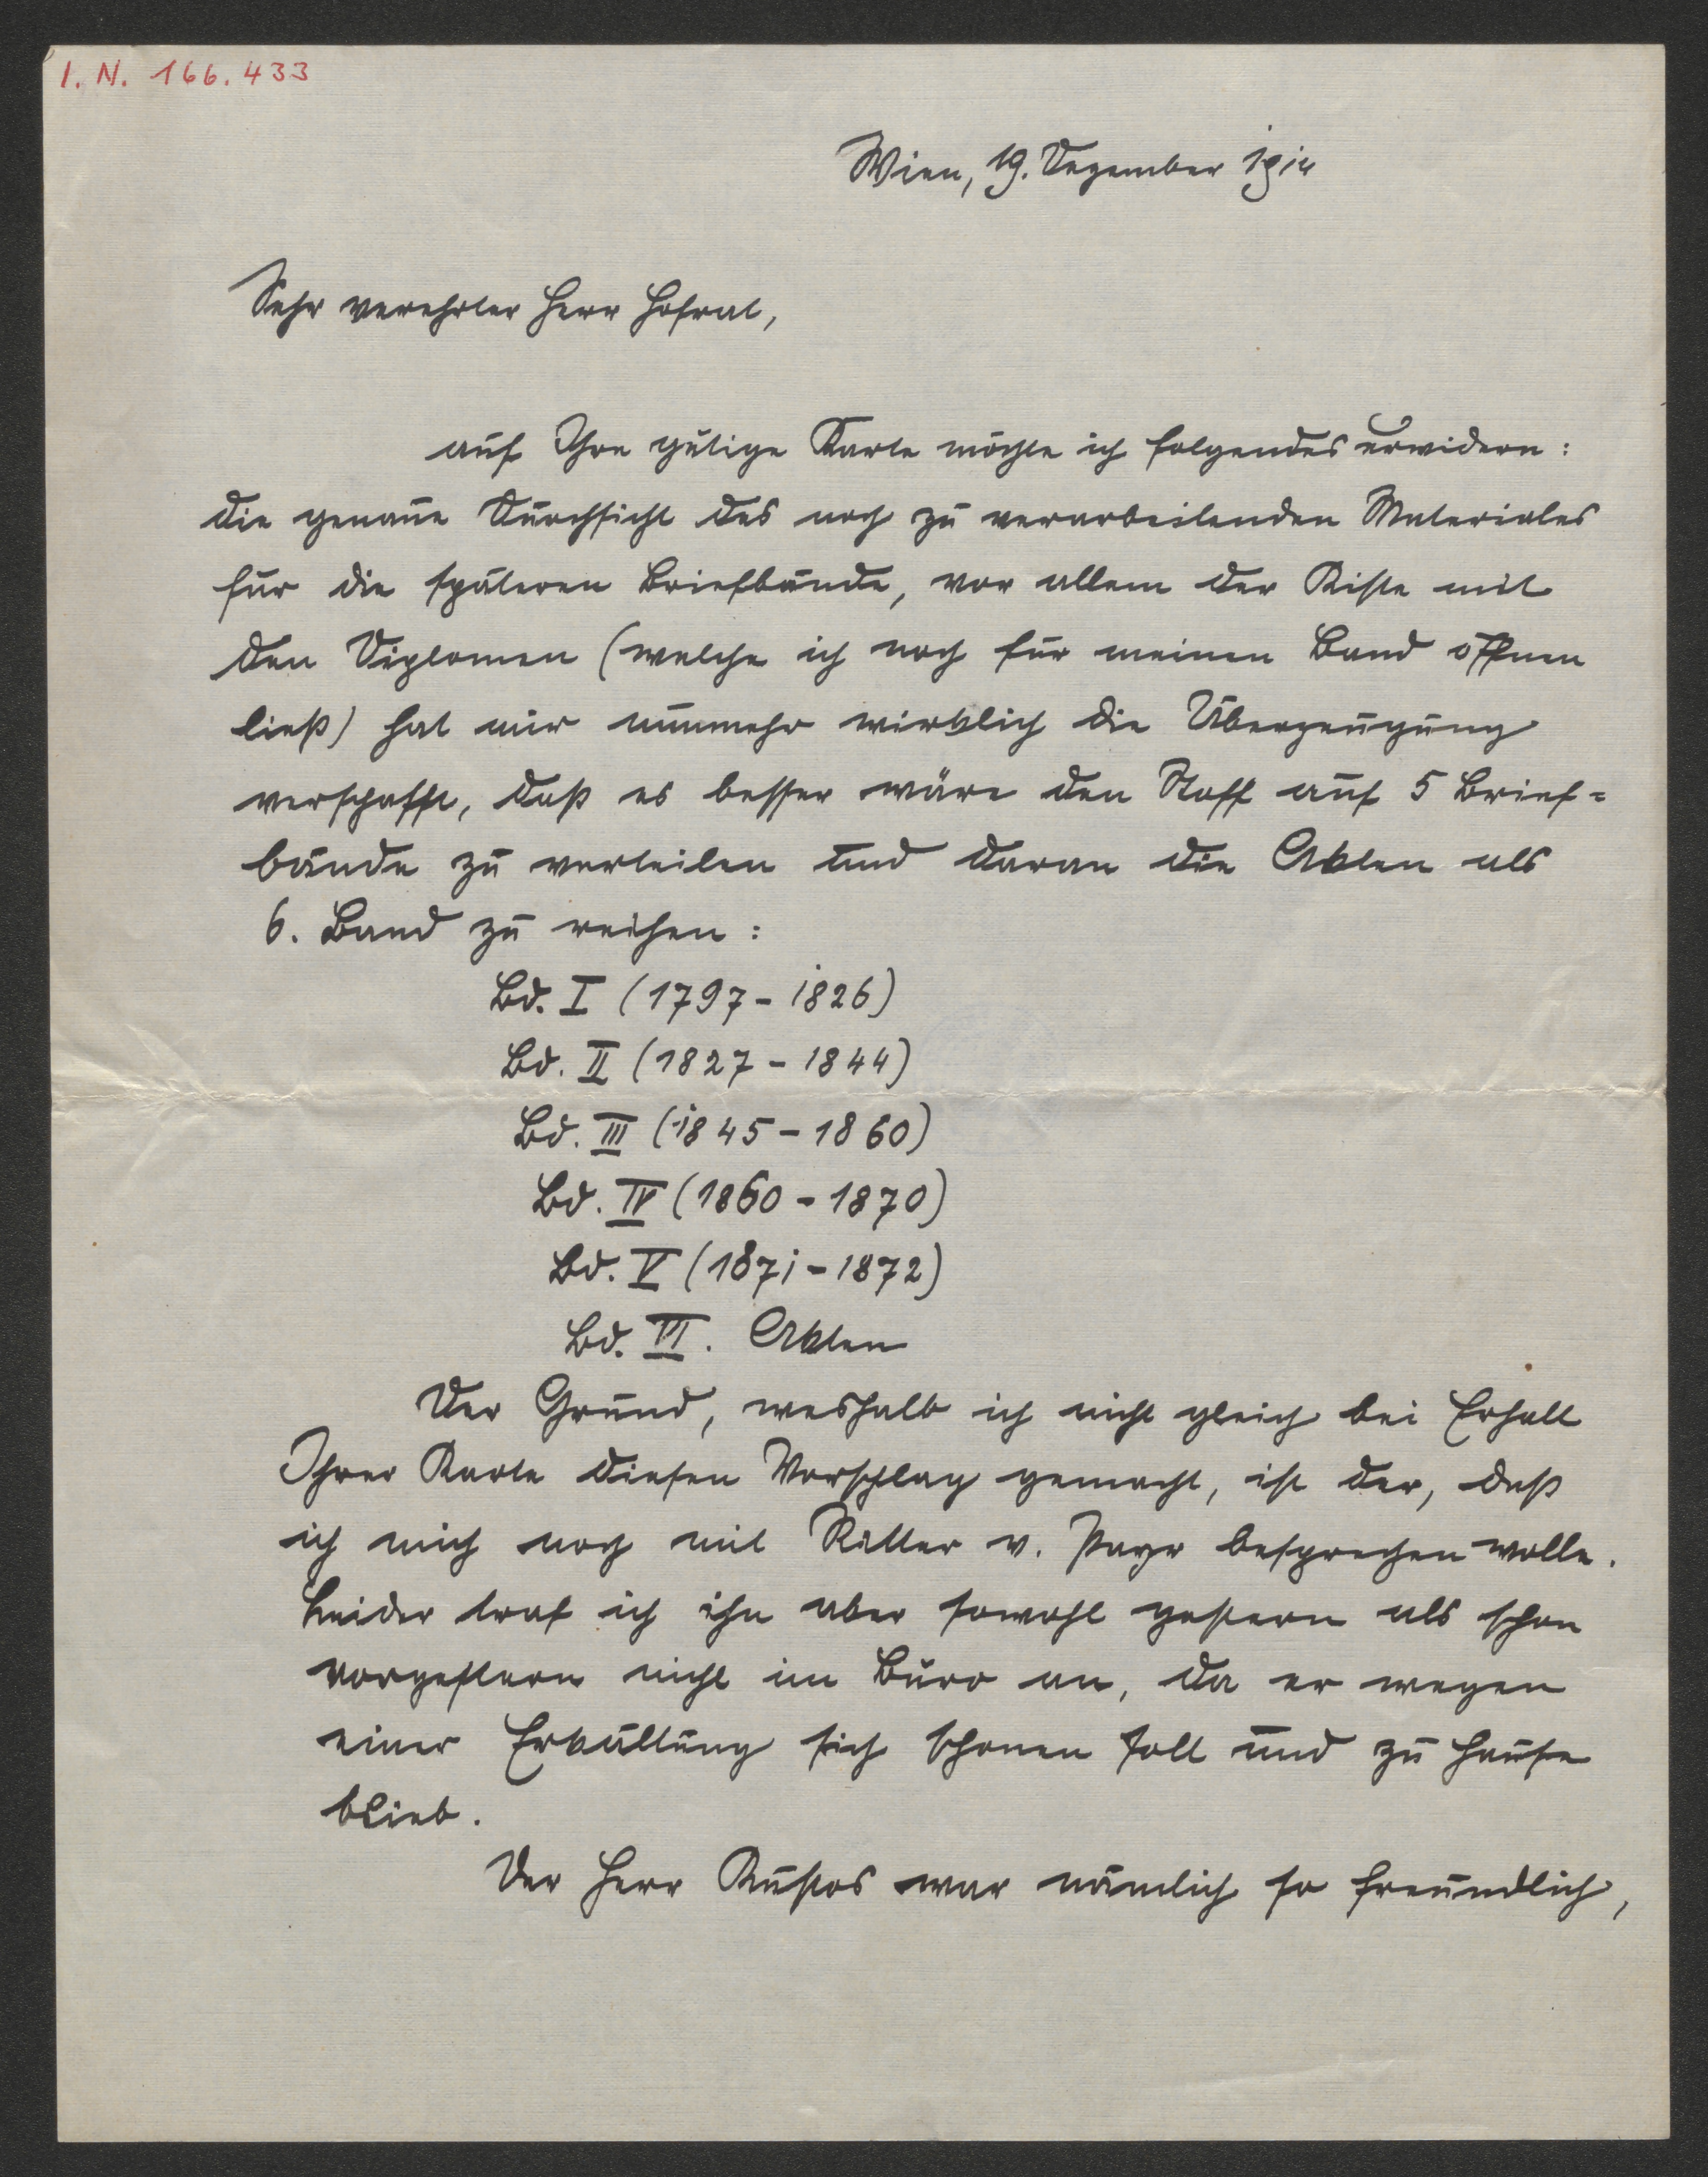 I. N. 166.433
Wien, 19. Dezember 1914
Sehr verehrter Herr Hofrat,
auf Ihre gütige Karte möchte ich folgendes erwidern:
die genaue Durchsicht des noch zu verarbeitenden Materiales
für die späteren Briefbände, vor allem der Kiste mit
den Diplomen (welche ich noch für meinen Band öffnen
ließ) hat mir nunmehr wirklich die Überzeugung
verschafft, daß es besser wäre den Stoff auf 5 Brief=
bände zu verteilen und daran die Akten als
6. Band zu reihen:
Bd. I (1797 - 1826)
Bd. II (1827 - 1844)
Bd. III (1845 - 1860)
Bd. IV (1860 - 1870)
Bd. V (1871 - 1872)
Bd. VI. Akten
Der Grund, weshalb ich nicht gleich bei Erhalt
Ihrer Karte diesen Vorschlag gemacht, ist der, daß
ich mich noch mit Ritter v. Payr besprechen wollte.
Leider traf ich ihn aber sowohl gestern als schon
vorgestern nicht im Büro an, da er wegen
einer Erkältung sich schonen soll und zu Hause
blieb.
Der Herr Kustos war nämlich so freundlich,